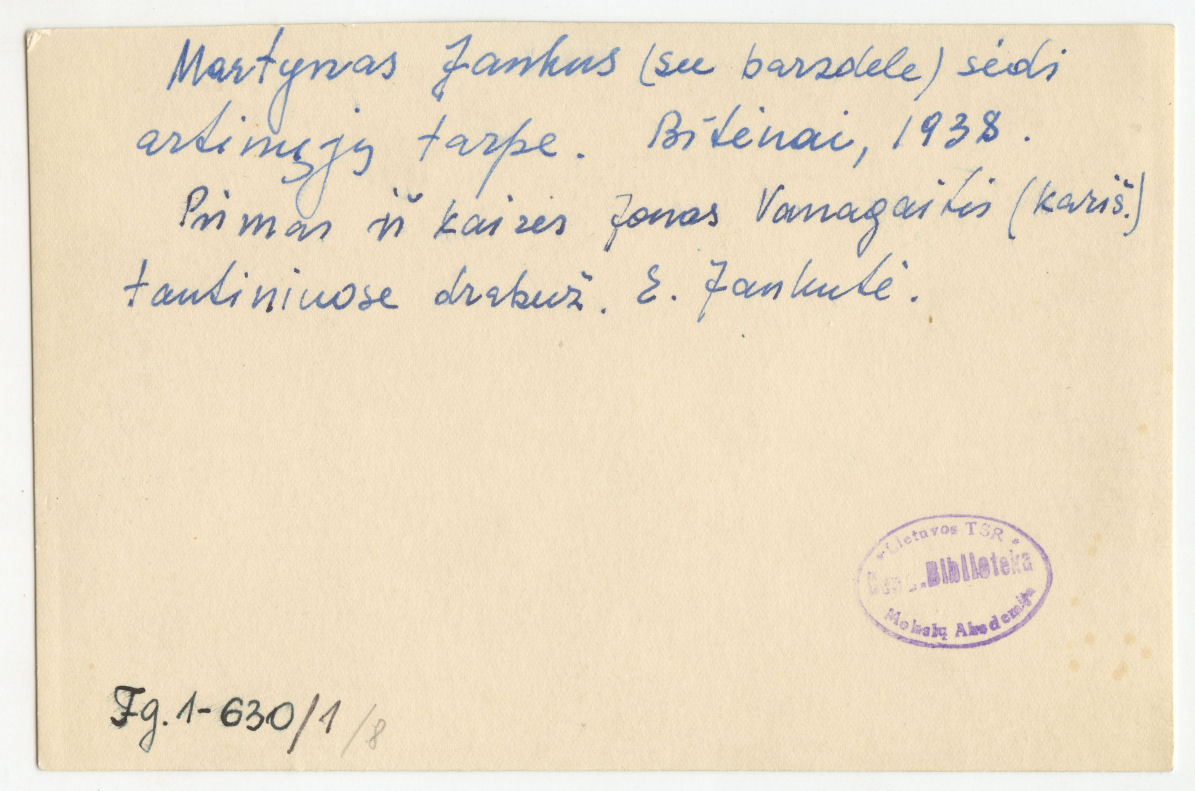 Martynas Jankus (su barzdele) sėdi
artimųjų tarpe. Bitėnai, 1938.
Pirmas iš kairės Jonas Vanagaitis (kariš.)
tautiniuose drabuž. E. Jankutė.
Lietuvos TSR
Biblioteka
Mokslų Akademija
Fg. 1-630/1/8